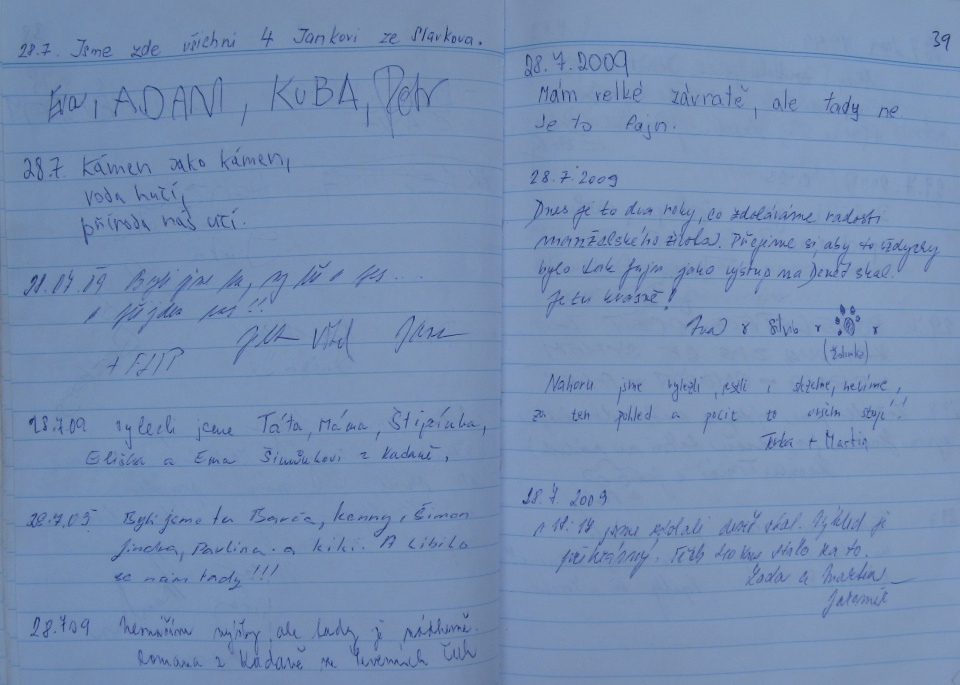 28.7. Jsme zde všichni 4 Jankovi ze Slavkova.
Eva, ADAM, KUBA, Petr
28.7 Kámen jako kámen,
voda hučí,
příroda nás učí.
28.07.09 Byli jsme tu,
+ FILIP
28.7.09 vylezli jsme Táta, Máma, Štěpánka,
Eliška a Ema z Kadaně.
28.7.09 Byli jsme tu Barča, Kenny, Šimon
Jindra, Pavlina a Kiki. A líbilo
se nám tady!!!
28.7.09 Nemusím výšky, ale tady je nádherně.
Romana z Kadaně
39
28.7.2009
Mám velké závratě, ale tady ne
Je to fajn.
28.7.2009
Dnes je to dva roky, co zdoláváme radosti
manželského života. Přejeme si, aby to vždycky
bylo tak fajn jako výstup na Devět skal.
Je tu krásně!
Silvio
Nahoru jsme vylezli, jestli i slezeme, nevíme,
za ten pohled a pocit to ovšem stojí!!
+ Martin
28.7.2009
jsme zdolali devět skal. Výhled je
překrásný. Těch stálo za to.
a Martina
Jaromír